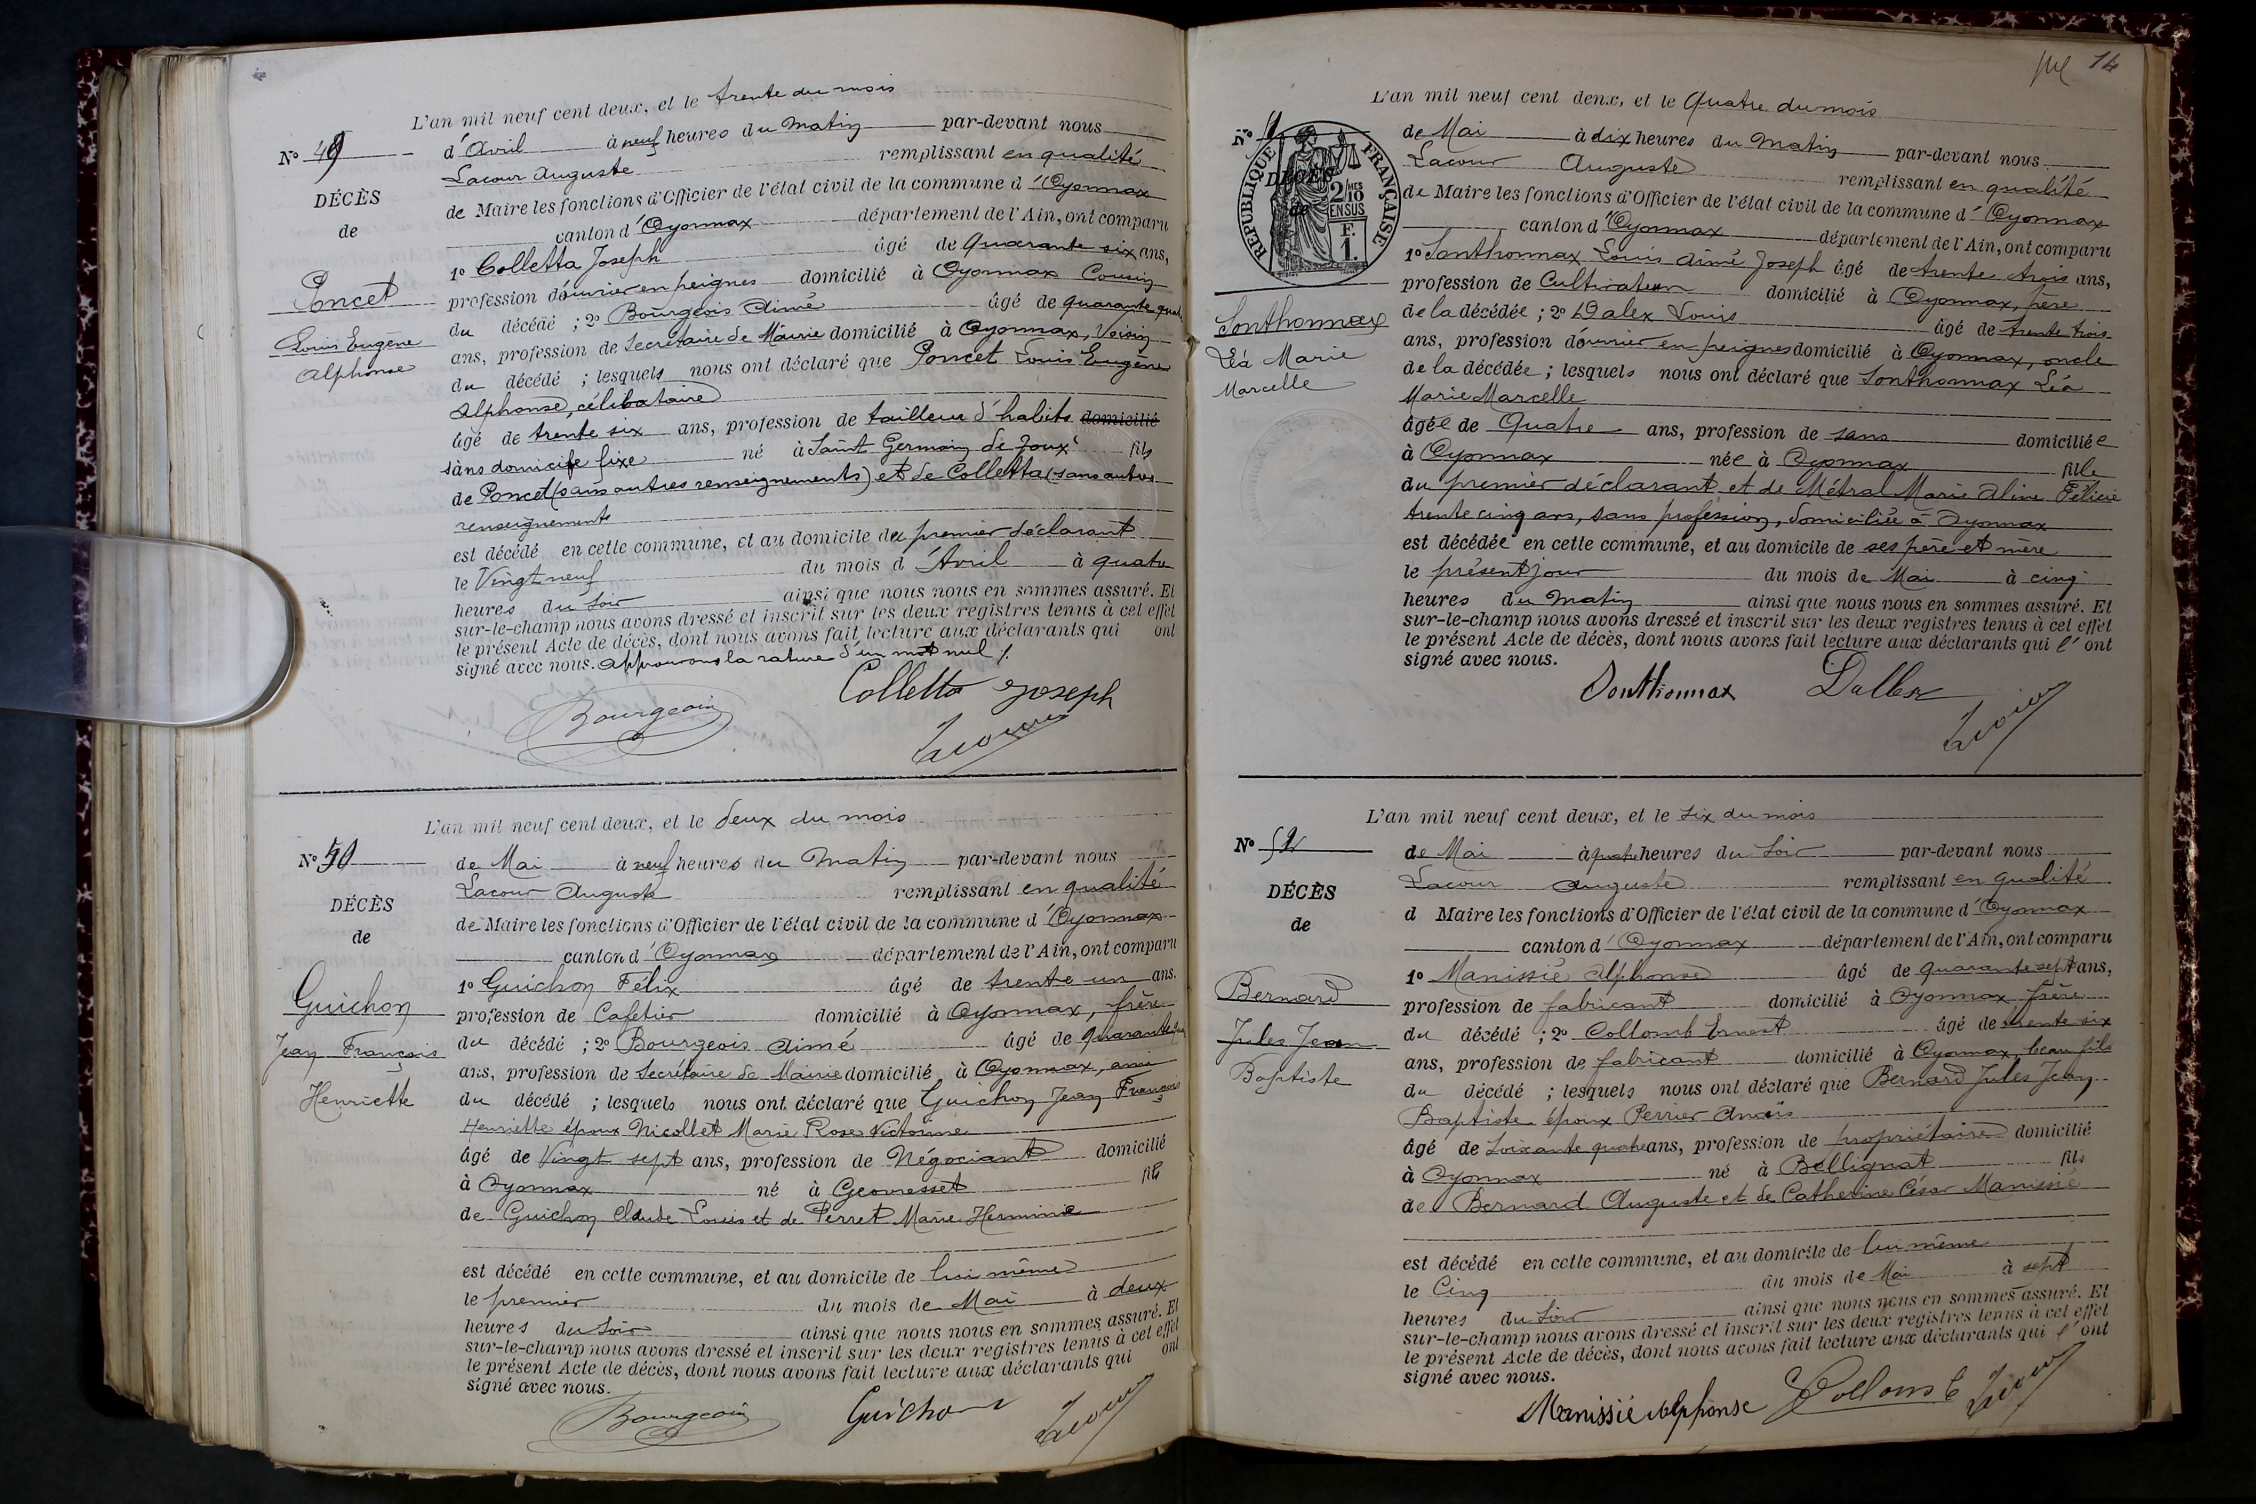 L'an mil neuf cent deux, et le trente du mois
N° 49
d'Avril à neuf heures du Matin par-devant nous
DÉCÈS
Lacour Auguste remplissant en qualité
de
de Maire les fonctions d'Officier de l'état civil de la commune d'Oyonnax
canton d'Oyonnax département de l'Ain, ont comparu
1° Colletta Joseph âgé de quarante six ans,
Poncet
profession d'ouvrier en peignes domicilié à Oyonnax Cousin
du décédé ; 2° Bourgeois Aimé âgé de quarante
Louis Eugène
ans, profession de Secrétaire de Mairie domicilié à Oyonnax, Voisin
Alphonse
du décédé ; lesquels nous ont déclaré que Poncet Louis Eugène
Alphonse, célibataire
âgé de trente six ans, profession de tailleur d'habits domicilié
sans domicile fixe né à Saint Germain de Joux fils
de Poncet (sans autres renseignements) et de Colletta (sans autres
renseignements
est décédé en cette commune, et au domicile du premier déclarant
le Vingt neuf du mois d'Avril à quatre
heures du Soir ainsi que nous nous en sommes assuré. Et
sur-le-champ nous avons dressé et inscrit sur les deux registres tenus à cet effet
le présent Acte de décès, dont nous avons fait lecture aux déclarants qui ont
signé avec nous. Approuvons la rature d'un mot nul /.
Colletta Joseph
Bourgeois
Lacour
L'an mil neuf cent deux, et le deux du mois
N° 50
de Mai à neuf heures du Matin par-devant nous
Lacour Auguste remplissant en qualité
DÉCÈS
de Maire les fonctions d'Officier de l'état civil de la commune d'Oyonnax
de
canton d'Oyonnax département de l'Ain, ont comparu
1° Guichon Félix âgé de trente un ans.
Guichon
profession de Cafetier domicilié à Oyonnax, frère
Jean François
du décédé ; 2° Bourgeois Aimé âgé de quarante
ans, profession de Secrétaire de Mairie domicilié à Oyonnax, ami
Henriette
du décédé ; lesquels nous ont déclaré que Guichon Jean François
Henriette époux Nicollet Marie Rose Victorine
âgé de Vingt sept ans, profession de Négociant domicilié
à Oyonnax né à Geovresset fils
de Guichon Claude Louis et de Perret Marie Herminie
est décédé en cette commune, et au domicile de lui même
le premier du mois de Mai à deux
heures du Soir ainsi que nous nous en sommes assuré. Et
sur-le-champ nous avons dressé et inscrit sur les deux registres tenus à cet effet
le présent Acte de décès, dont nous avons fait lecture aux déclarants qui ont
signé avec nous.
Bourgeois Guichon Lacour
14
L'an mil neuf cent deux, et le Quatre du mois
N°
de Mai à dix heures du Matin par-devant nous
RÉPUBLIQUE FRANÇAISE
2/10 MES
EN SUS
F.
1.
DÉCÈS
de
Lacour Auguste remplissant en qualité
de Maire les fonctions d'Officier de l'état civil de la commune d'Oyonnax
canton d'Oyonnax département de l'Ain, ont comparu
1° Sonthonnax Louis Aimé Joseph âgé de trente trois ans,
profession de Cultivateur domicilié à Oyonnax, père
Sonthonnax
de la décédée ; 2° Dalex Louis âgé de trente trois
ans, profession d'ouvrier en peignes domicilié à Oyonnax, oncle
Léa Marie
de la décédée ; lesquels nous ont déclaré que Sonthonnax Léa
Marcelle
Marie Marcelle
âgée de Quatre ans, profession de sans domiciliée
à Oyonnax née à Oyonnax fille
du premier déclarant et de Métral Marie Aline Félicie
trente cinq ans, sans profession, domiciliée à Oyonnax
est décédée en cette commune, et au domicile de ses père et mère
le présent jour du mois de Mai à cinq
heures du Matin ainsi que nous nous en sommes assuré. Et
sur-le-champ nous avons dressé et inscrit sur les deux registres tenus à cet effet
le présent Acte de décès, dont nous avons fait lecture aux déclarants qui l'ont
signé avec nous.
Sonthonnax Dallex
Lacour
L'an mil neuf cent deux, et le Six du mois
N° 52
de Mai à quatre heures du Soir par-devant nous
Lacour Auguste remplissant en qualité
DÉCÈS
d Maire les fonctions d'Officier de l'état civil de la commune d'Oyonnax
de
canton d'Oyonnax département de l'Ain, ont comparu
1° Manissié Alphonse âgé de quarante sept ans,
Bernard
profession de fabricant domicilié à Oyonnax frère
Jules Jean
du décédé ; 2° Collomb Ernest âgé de trente six
ans, profession de fabricant domicilié à Oyonnax, beau fils
Baptiste
du décédé ; lesquels nous ont déclaré que Bernard Jules Jean
Baptiste époux Perrier Anaïs
âgé de Soixante quatre ans, profession de propriétaire domicilié
à Oyonnax né à Bellignat fils
de Bernard Auguste et de Catherine César Manissié
est décédé en cette commune, et au domicile de lui même
le Cinq du mois de Mai à sept
heures du Soir ainsi que nous nous en sommes assuré. Et
sur-le-champ nous avons dressé et inscrit sur les deux registres tenus à cet effet
le présent Acte de décès, dont nous avons fait lecture aux déclarants qui l'ont
signé avec nous.
Manissié Alphonse Collomb Lacour